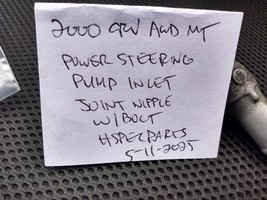 2000 CRV AWD MT
POWER STEERING
PUMP INLET
JOINT NIPPLE
W/BOLT
HSPECPARTS
5-11-2025